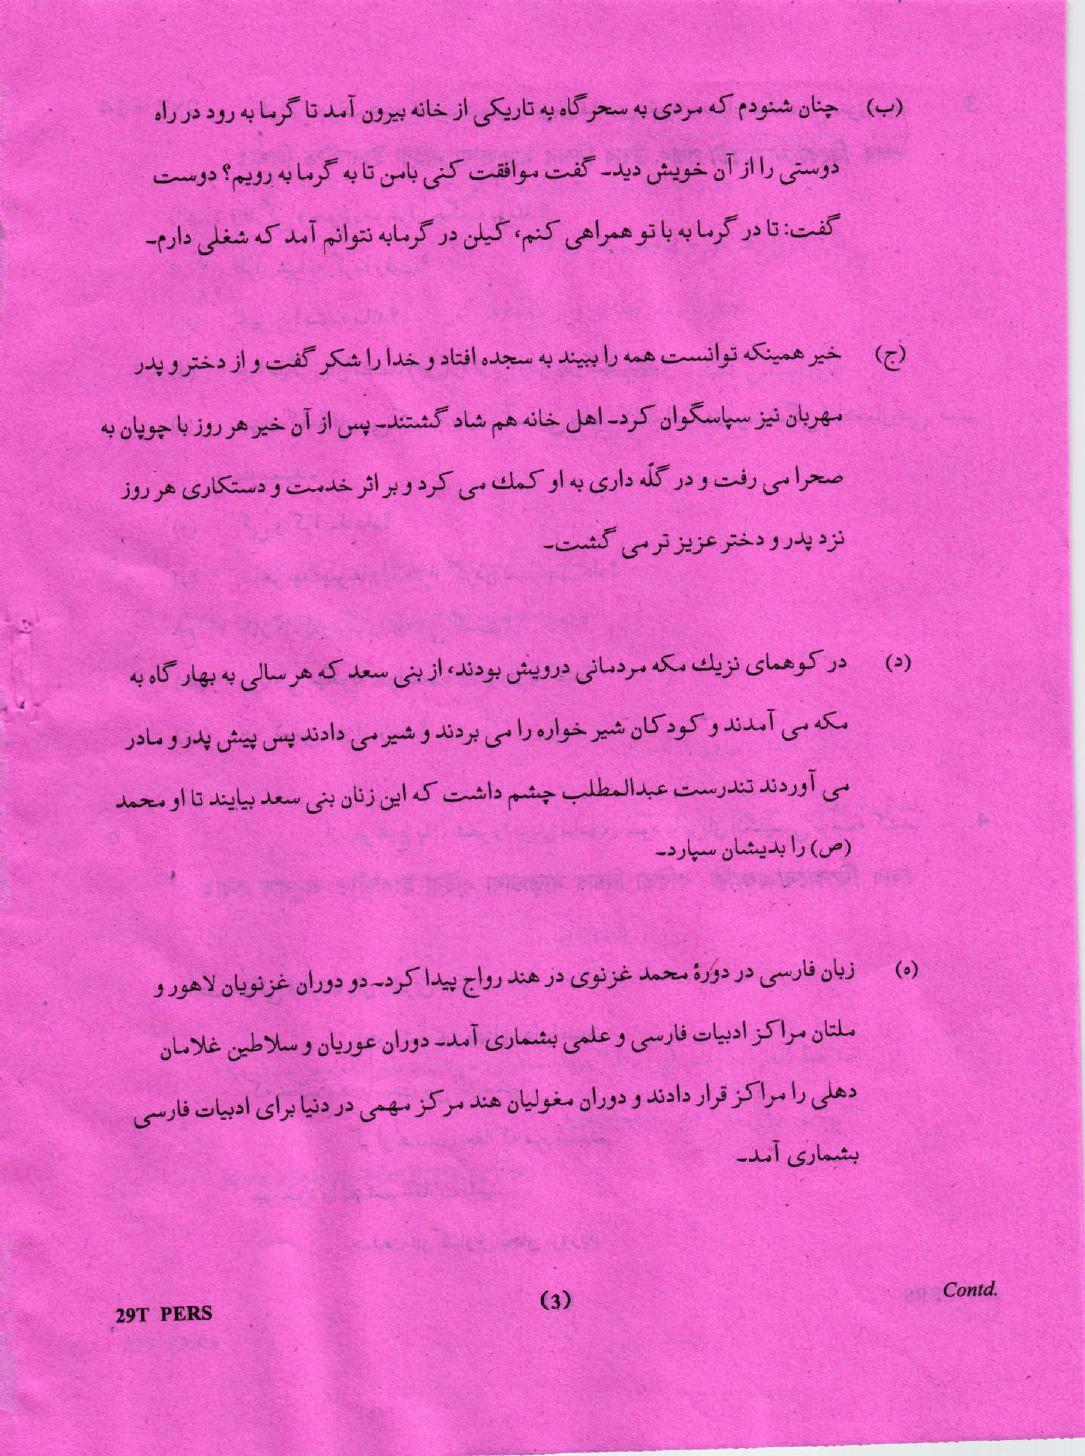 (ب) چنان شنودم که مردی به سحرگاه به تاریکی از خانه بیرون آمد تا گرما به رود در راه
دوستی را از آن خویش دید۔ گفت موافقت کنی بامن تا به گرما به رویم؟ دوست
گفت: تا در گرما به با تو همراهی کنم، کیلن در گرمابه نتوانم آمد که شغلی دارم۔
(ج) خیر همینکه توانست همه را ببیند به سجده افتاد و خدا را شکر گفت و از دختر و پدر
مهربان نیز سپاسگوان کرد۔ اهل خانه هم شاد گشتند۔ پس از آن خیر هر روز با چوپان به
صحرا می رفت و در گلّه داری به او کمك می کرد و بر اثر خدمت و دستکاری هر روز
نزد پدر و دختر عزیز تر می گشت۔
(د) در کوهمای نزیك مکه مردمانی درویش بودند، از بنی سعد که هر سالی به بهار گاه به
مکه می آمدند و کودکان شیر خواره را می بردند و شیر می دادند پس پیش پدر و مادر
می آوردند تندرست عبدالمطلب چشم داشت که این زنان بنی سعد بیایند تا او محمد
(ص) را بدیشان سپارد۔
(ه) زبان فارسی در دورۀ محمد غزنوی در هند رواج پیدا کرد۔ دو دوران غزنویان لاهور و
ملتان مراکز ادبیات فارسی و علمی بشماری آمد۔ دوران عوریان و سلاطین غلامان
دهلی را مراکز قرار دادند و دوران مغولیان هند مرکز مهمی در دنیا برای ادبیات فارسی
بشماری آمد۔
Contd.
(3)
29T PERS